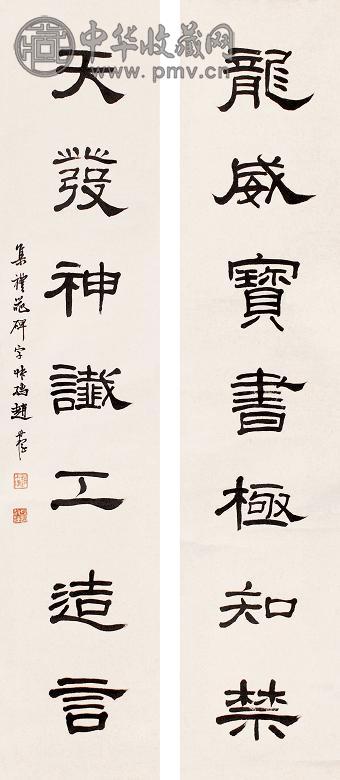 龍威寶書極知禁
天發神讖工造言
集禮器碑字
趙
中华收藏网
www.pmv.cn